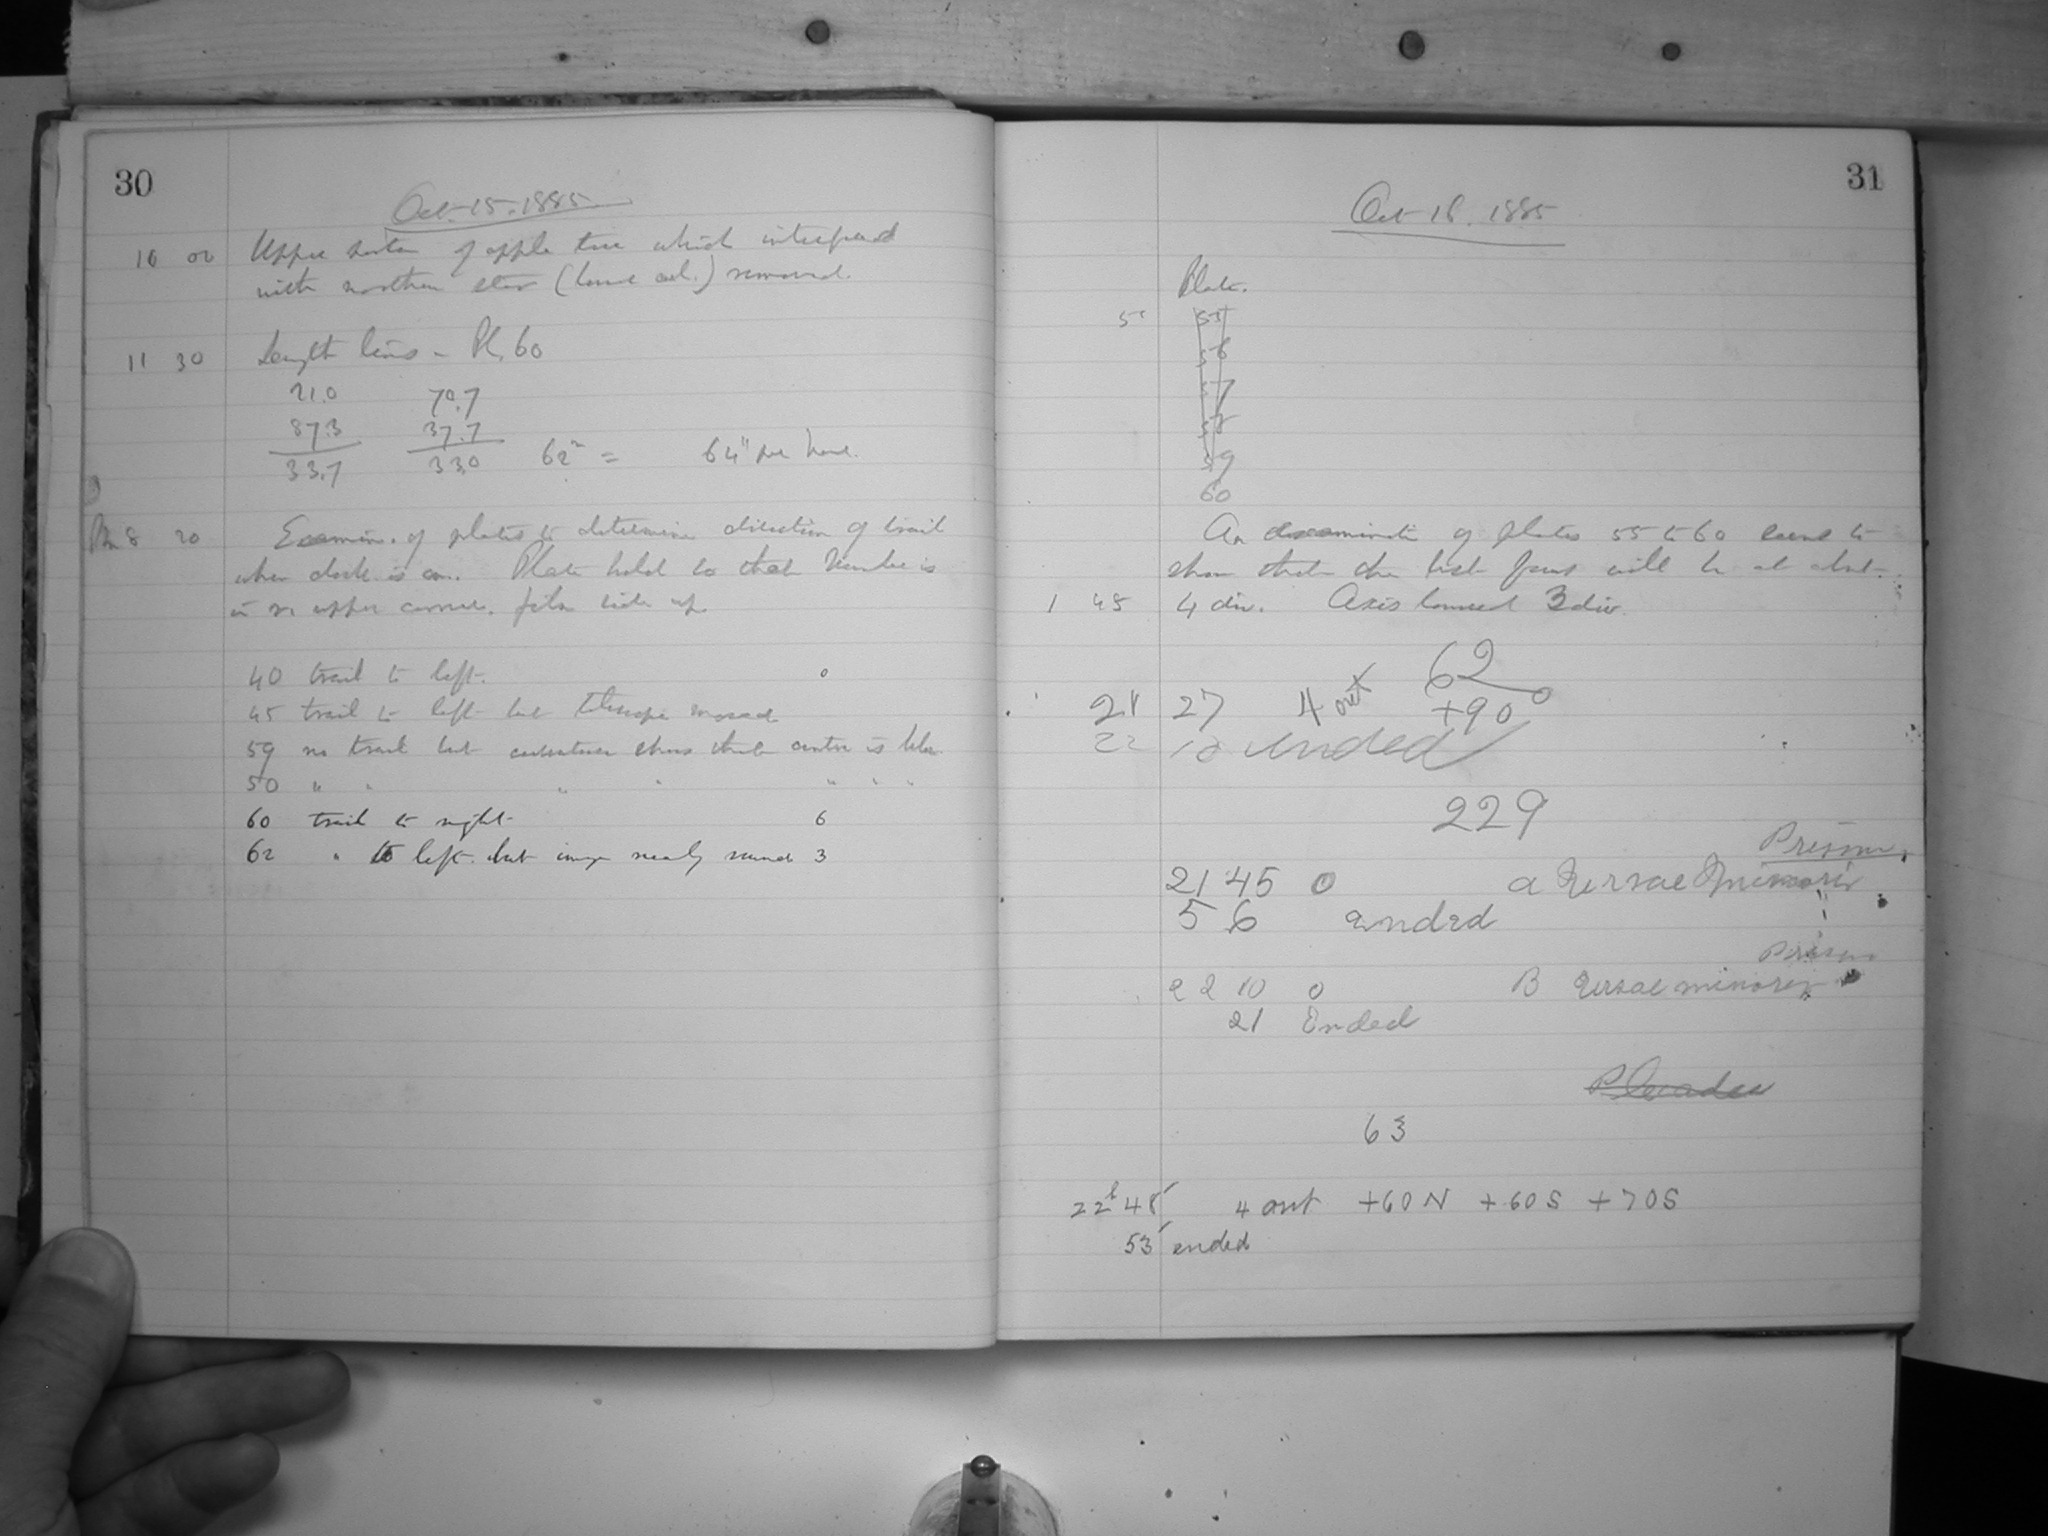 30
Oct. 15. 1885
10 00 Upper portion of apple tree which interfered
with northern star (lower cul.) removed.
11 30 Length lines - Pl. 60
21.0 70.7
87.3 37.7
33.7 33.0 62 = 64" per hour.
8 20 Examin. of plates to determine direction of trail
when clock is on. Plate held so that Number is
in upper corner. film side up
40 trail to left. 0
45 trail to left but telescope moved
59 no trail but curvature shows that centre is below
50 " " " " " " "
60 trail to right 6
62 " to left. but image nearly round 3
31
Oct 16. 1885
Plate.
55
56
57
58
59
60
An examination of plates 55 to 60 seems to
show that the best focus will be at about
1 45 4 div. Axis lowered 3 div.
62
21 27 4 out +90°
22 12 ended
229
Prism
21 45 0 a Ursae Minoris
56 ended
Prism
22 10 0 B Ursae minoris
21 Ended
Pleiades
63
22h 48' 4 out +60N +60S +70S
53' ended